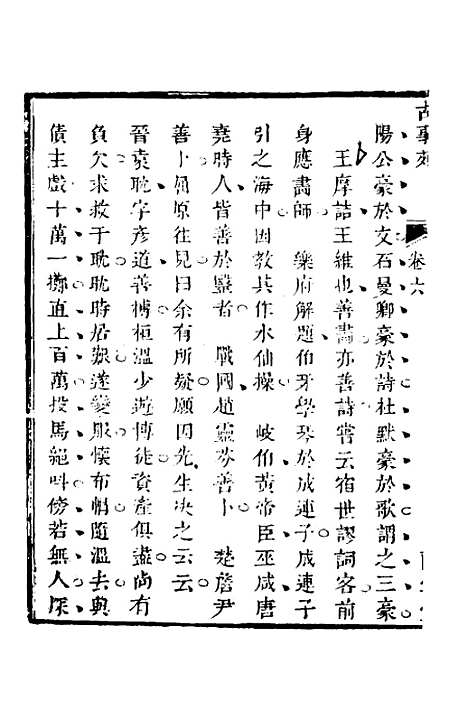 卷六
陽公豪於文石曼卿豪於詩杜默豪於歌謂之三豪
王摩詰王維也善畵亦善詩嘗云宿世謬詞客前
身應畵師　樂府解題伯牙學琴於成連子成連子
引之海中因教其作水仙操　岐伯黃帝臣巫咸唐
堯時人皆善於醫者　戰國趙靈　善卜　楚詹尹
善卜屈原往見曰余有所疑願因先生决之云云
晉袁耽字彥道善慱桓溫少遊慱徒資產俱盡尚有
負欠求救于耽耽時居艱遂變服懷布帽隨溫去與
債主戲十萬一擲直上百萬投馬絕叫傍若無人深